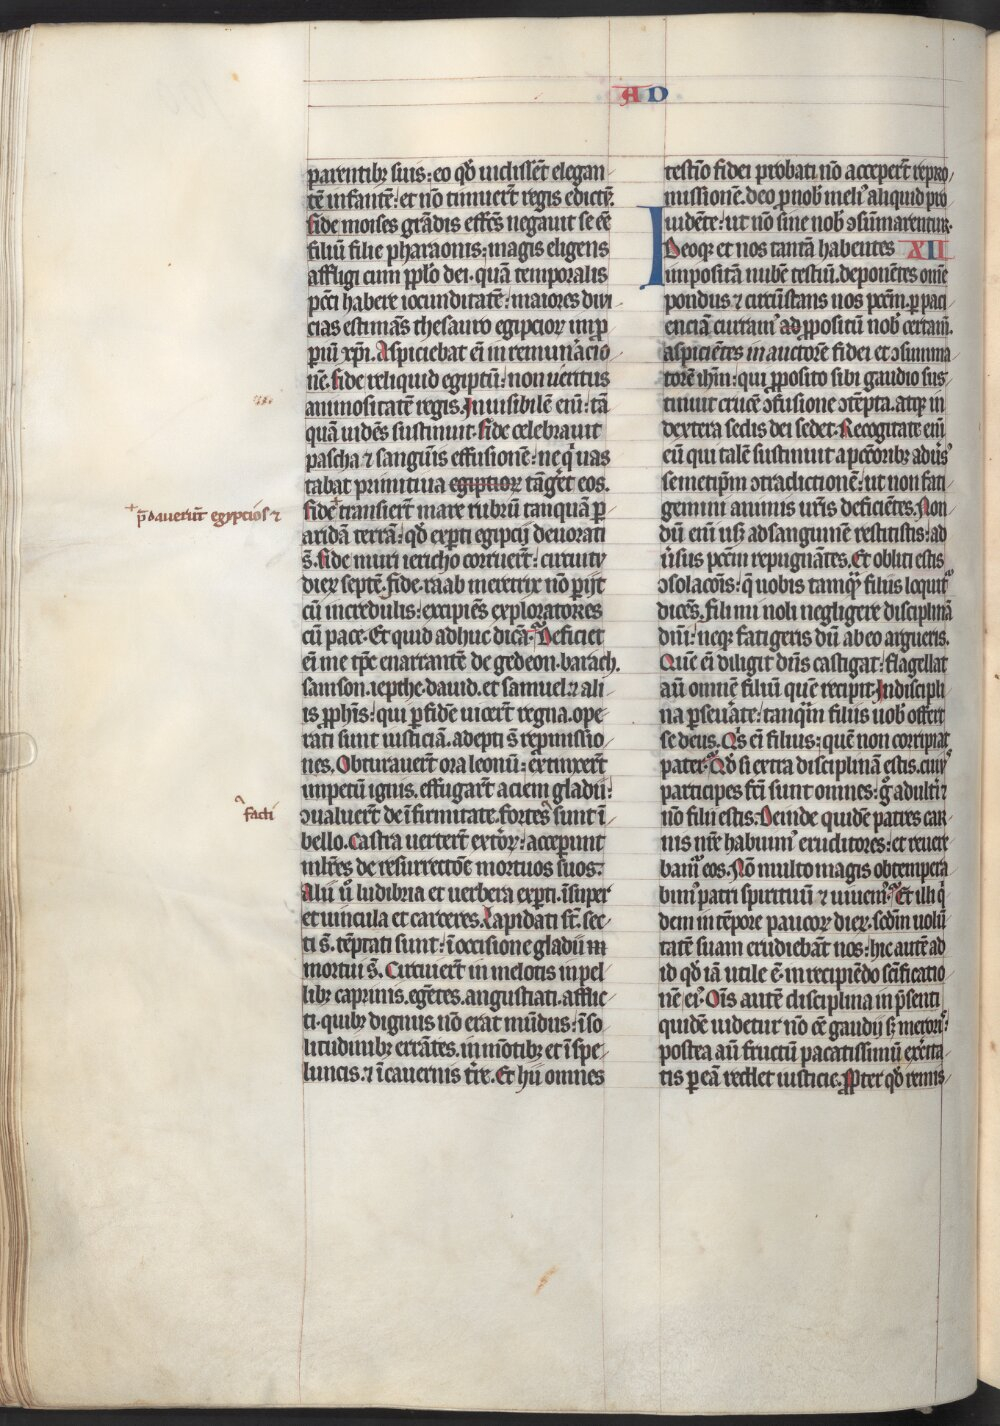 AD
parentibꝫ suis: eo qð uidissēt elegan
tē infantē: et nō timuert̄ regis edictū.
fide moises grādis effcs̄ negauit se ēē
filiū filie pharaonis: magis eligens
affligi cum pplo dei. quā temporalis
pccī habere iocunditatē: maiores diui
cias estimās thesauro egipcioꝝ imp
piū xp̄i. Aspiciebat eī in remunacio
nē. fide reliquid egiptū: non ueritus
animositatē regis. Inuisibilē enī: tā
quā uidēs sustinuit. fide celebrauit
pascha ⁊ sanguīs effusionē: ne qͥ uas
tabat primitiua egiptioꝝ tāget̄ eos.
+ p̄dauerūt egypcios ⁊
fide + transiert̄ mare rubrū tanquā ꝑ
aridā terrā: qð experti egipcij deuorati
s̄. fide muri iericho corruert̄: circuitu
dieꝝ septē. fide raab meretrix nō ꝑijt
cū incredulis: excipiēs exploratores
cū pace. Et quid adhuc dicā. Deficiet
eī me tꝑc enarrantē de gedeon. barach.
samson. iepthe. dauid. et samuel. ⁊ ali
is pphīs: qui ꝑ fidē uicert̄ regna. ope
rati sunt iusticiā. adepti s̄ repmissio
nes. Obturauert̄ ora leonū: extinxert̄
impetū ignis. effugart̄ aciem gladii:
facti
ↄualuert̄ de ī firmitate. fortes sunt ī
bello. Castra uertert̄ exteroꝝ: acceperunt
mlr̄es de resurrectōe mortuos suos.
Alii ů ludibria et uerbera experti. īsuper
et uincula et carceres. Lapidati st̄. sec
ti s̄. tēptati sunt: ī occisione gladii m
mortui s̄. Circuiert̄ in melotis in pel
libꝫ caprinis. egētes. angustiati. afflic
ti. quibꝫ dignus nō erat mūdus: ī so
litudinibꝫ errātes. in mōtibꝫ et ī spe
luncis. ⁊ ī cauernis tr̄e. Et hii omnes
testīo fidei probati nō accepert̄ repro
missionē. deo p nob̄ meliꝰ aliquid pro
uidēte: ut nō sine nob̄ ↄsūmarentur.
Ideoqꝫ et nos tantā habentes XII
impositā nubē testiū. deponētes om̄e
pondus ⁊ circūstans nos pccm̄. ꝑ paci
enciā curramꝰ ad ppositū nob̄ certam̄.
aspiciētes in auctorē fidei et ↄsumma
torē ihm̄: qui pposito sibi gaudio sus
tinuit crucē ↄfusione ↄtēpta. atqꝫ in
dextera sedis dei sedet. Recogitate enī
eū qui talē sustinuit a pccoribꝫ aduꝰs
semetipm̄ ↄtradictionē: ut non fati
gemini animis uris̄ deficiētes. Non
dū enī usꝫ ad sanguinē restitistis: ad
ůsus pccm̄ repugnātes. Et obliti estis
ↄsolacōis: q̄ uobis tamqͣ filiis loquitur
dicēs. fili mi noli negligere disciplinā
dnī: neqꝫ fatigeris dū ab eo argueris.
Quē eī diligit dn̄s castigat: flagellat
aū omnē filiū quē recipit. In discipli
na ꝑseuate: tanqͣm filiis uob̄ offert
se deus. Qͥs eī filius: quē non corripiat
pater. Qð si extra disciplinā estis. cuiꝰ
participes fct̄i sunt omnes: g̊ adulti ⁊
nō filii estis. Deinde quidē patres car
nis nrē habuimꝰ eruditores: et reuere
bamͬ eos. Nō multo magis obtempera
bimꝰ patri spirituū ⁊ uiuemꝰ. Et illi qͥ
dem in tēpore paucoꝝ dieꝝ. scdm̄ uolū
tatē suam erudiebāt nos: hic autē ad
id qð iā utile ē. in recipiēdo scīficatio
nē eiꝰ. Oīs autē disciplina in p̄senti
quidē uidetur nō ēē gaudij sꝫ meroris:
postea aū fructū pacatissimū exēita
tis ꝑ eā reddet iusticie. ꝓpter qð remis